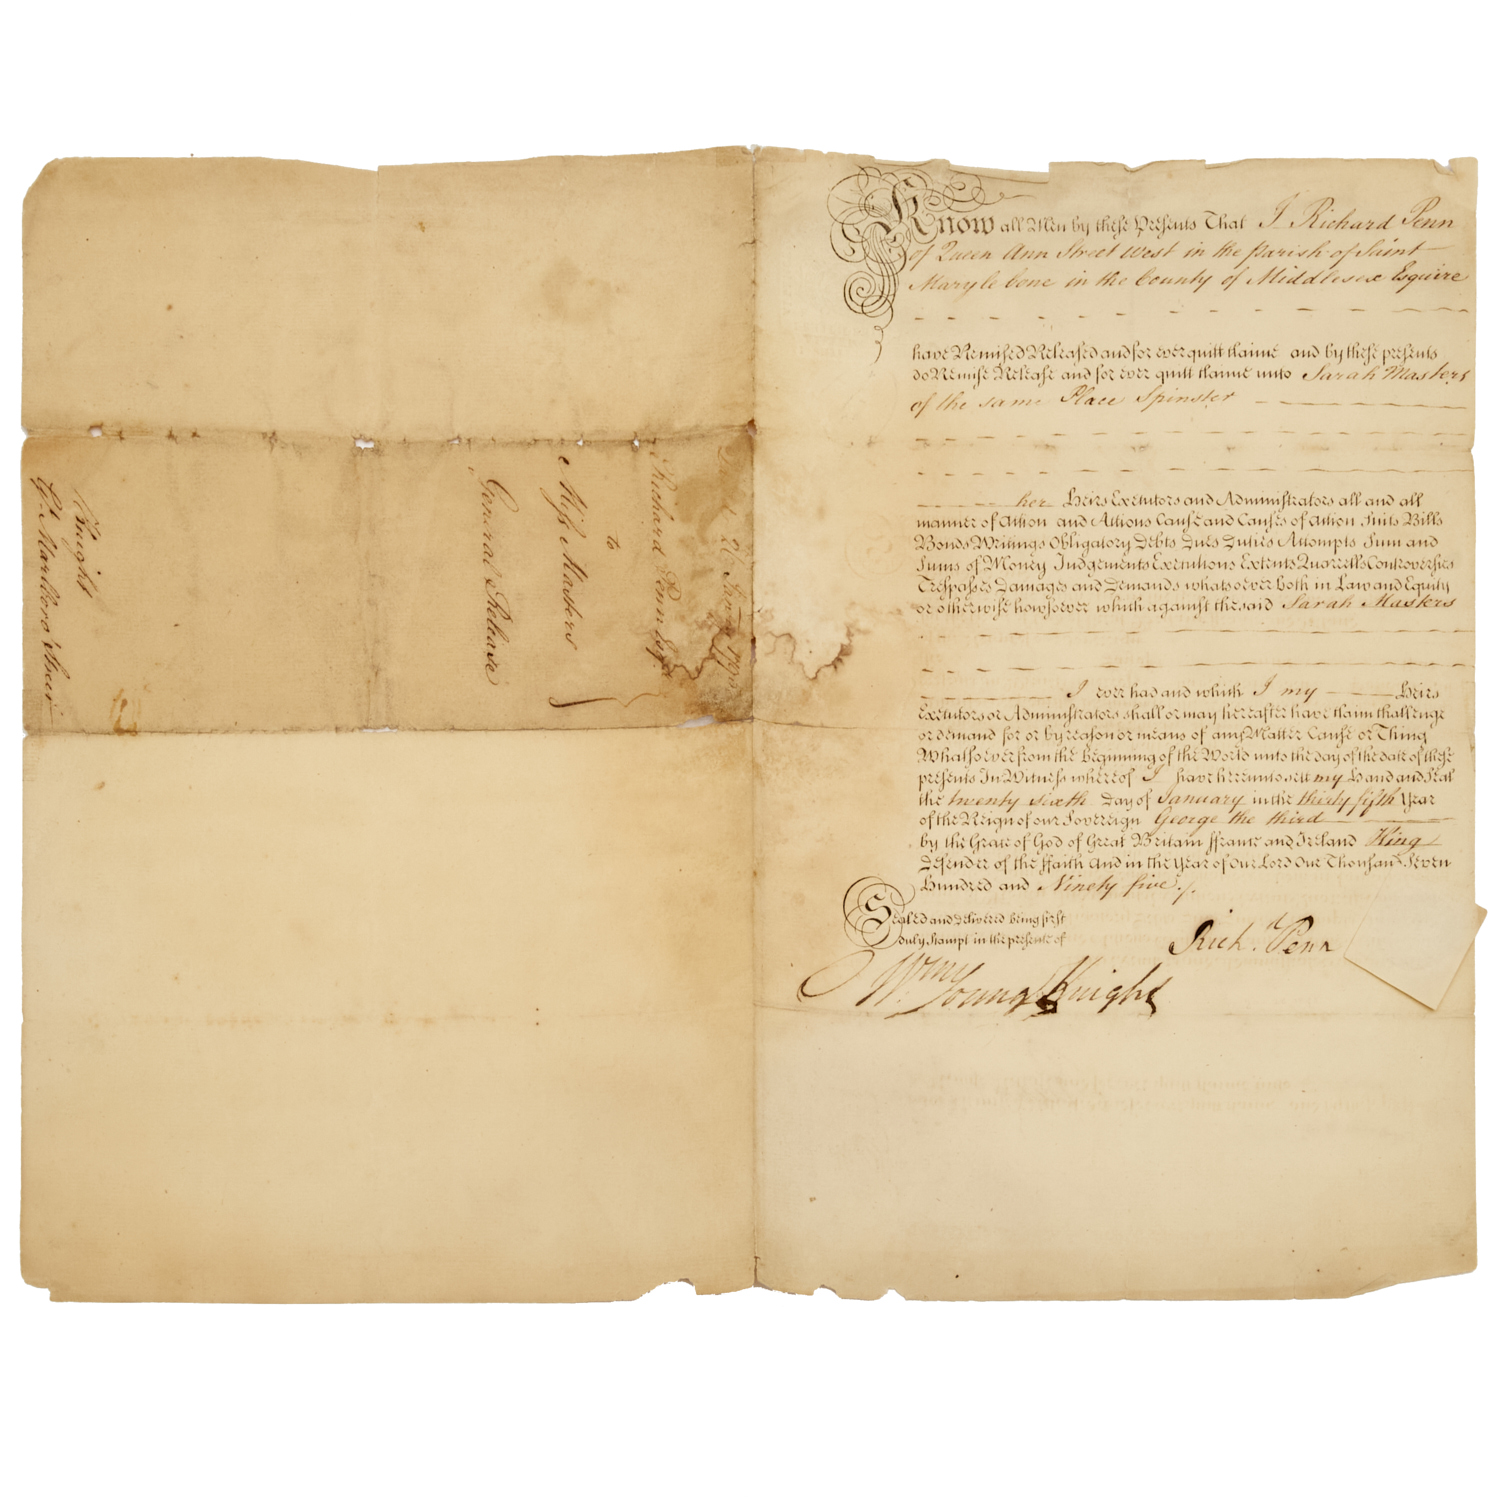 Know all Men by these Presents That I Richard Penn
of Queen Ann Street West in the parish of Saint
Maryle bone in the County of Middlesex Esquire
have Remised Released and for ever quitt claime and by these presents
do Remise Release and for ever quitt claime unto Sarah Masters
of the same Place Spinster
her Heirs Executors and Administrators all and all
manner of Action and Actions Cause and Causes of Action Suits Bills
Bonds Writings Obligatory Debts Dues Duties Attempts Sum and
Sums of Money Judgements Executions Extents Quarrells Controversies
Trespasses Damages and Demands whatsoever both in Law and Equity
or otherwise howsoever which against the said Sarah Masters
I ever had and which I my Heirs
Executors or Administrators shall or may hereafter have claim challenge
or demand for or by reason or means of any Matter Cause or Thing
Whatsoever from the beginning of the World unto the day of the date of these
presents In Witness whereof I have hereunto sett my Hand and Seal
the twenty sixth Day of January in the thirty fifth Year
of the Reign of our Sovereign George the third
by the Grace of God of Great Britain ffrance and Ireland King
Defender of the ffaith And in the Year of Our Lord One Thousand Seven
Hundred and Ninety five
Sealed and Delivered being first
duly stampt in the presence of
Rich.d Penn
Wm Young Knight
26 Janry 1795
Richard Penn Esqr
to
Miss Masters
General Release
Knight
Gt. Marlboro' Street